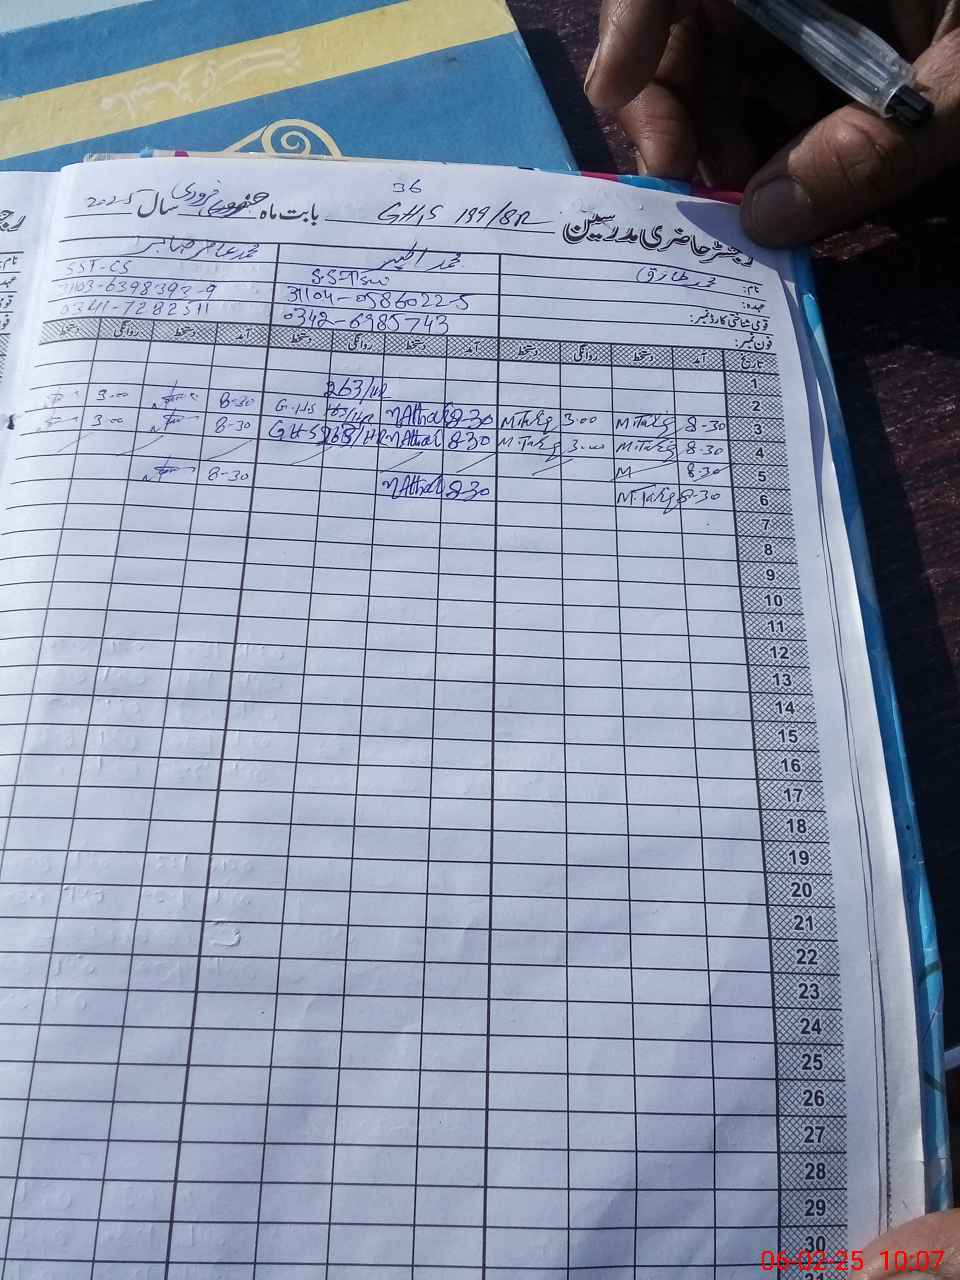 36
رجسٹر حاضری مدرسین GHS 199/8R بابت ماہ جنوری فروری سال 2025
نام: محمد طارق محمد اطہر محمد عامر صابر
عہدہ: SST-CS
قومی شناختی کارڈ نمبر: 31104-0586022-5 31103-6398392-9
فون نمبر: 0342-6985743 0341-7282511
تاریخ آمد دستخط روانگی دستخط آمد دستخط روانگی دستخط آمد دستخط روانگی دستخط
1
2 263/HR
3 8-30 M.Tariq 3.00 M.Tariq 8-30 MAthar G.HS 263/HR 8-30 3.00
4 8.30 M.Tariq 3.00 M.Tariq 8-30 MAthar GHS 263/HR 8-30 3.00
5 8.30 M
6 8-30 M.Tariq 8-30 MAthar 8-30
7
8
9
10
11
12
13
14
15
16
17
18
19
20
21
22
23
24
25
26
27
28
29
30
06-02-25 10:07